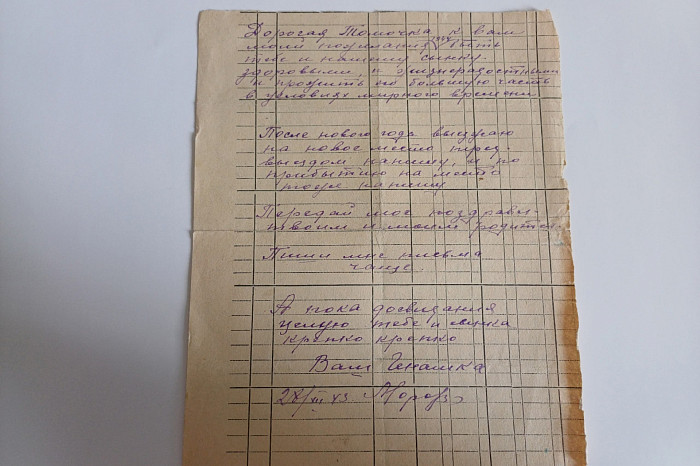 Дорогая Томочка к вам
мои пожелания быть
тебе и нашему сынку
здоровыми, и жизнерадостными
и прожить по большую часть
в условях мирного времени.
После нового года выезжаю
на новое место перед
выездом напишу, и по
прибытию на место
тоже напишу
Передай мое поздравл-
твоим и моим родител.
Пиши мне письма
чаще.
А пока досвидания
целую тебе и сынка
крепко крепко
Ваш Генашка
28/XII 43. Мороз